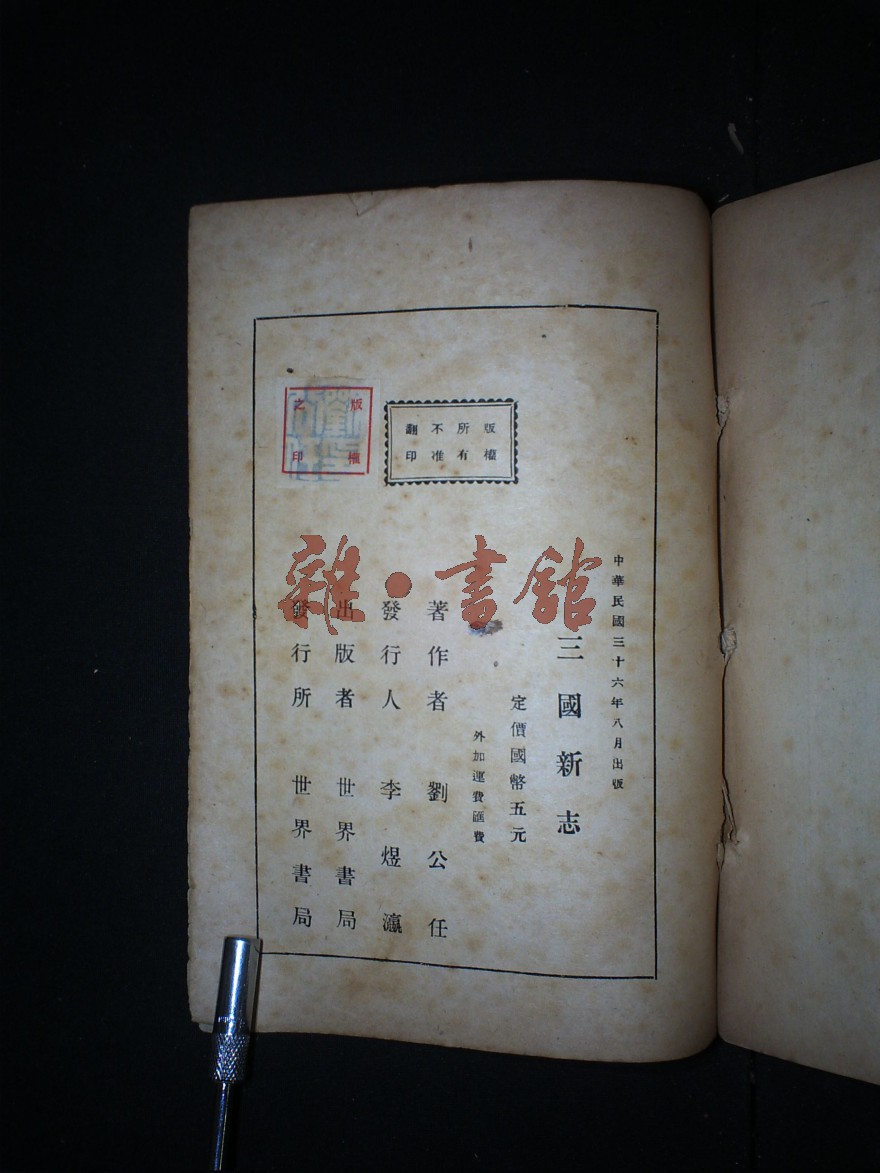 中華民國三十六年八月出版
三國新志
定價國幣五元
外加運費匯費
著作者 劉公任
發行人 李煜瀛
出版者 世界書局
發行所 世界書局
版權
所有
不准
翻印
版權
之印
雜·書館